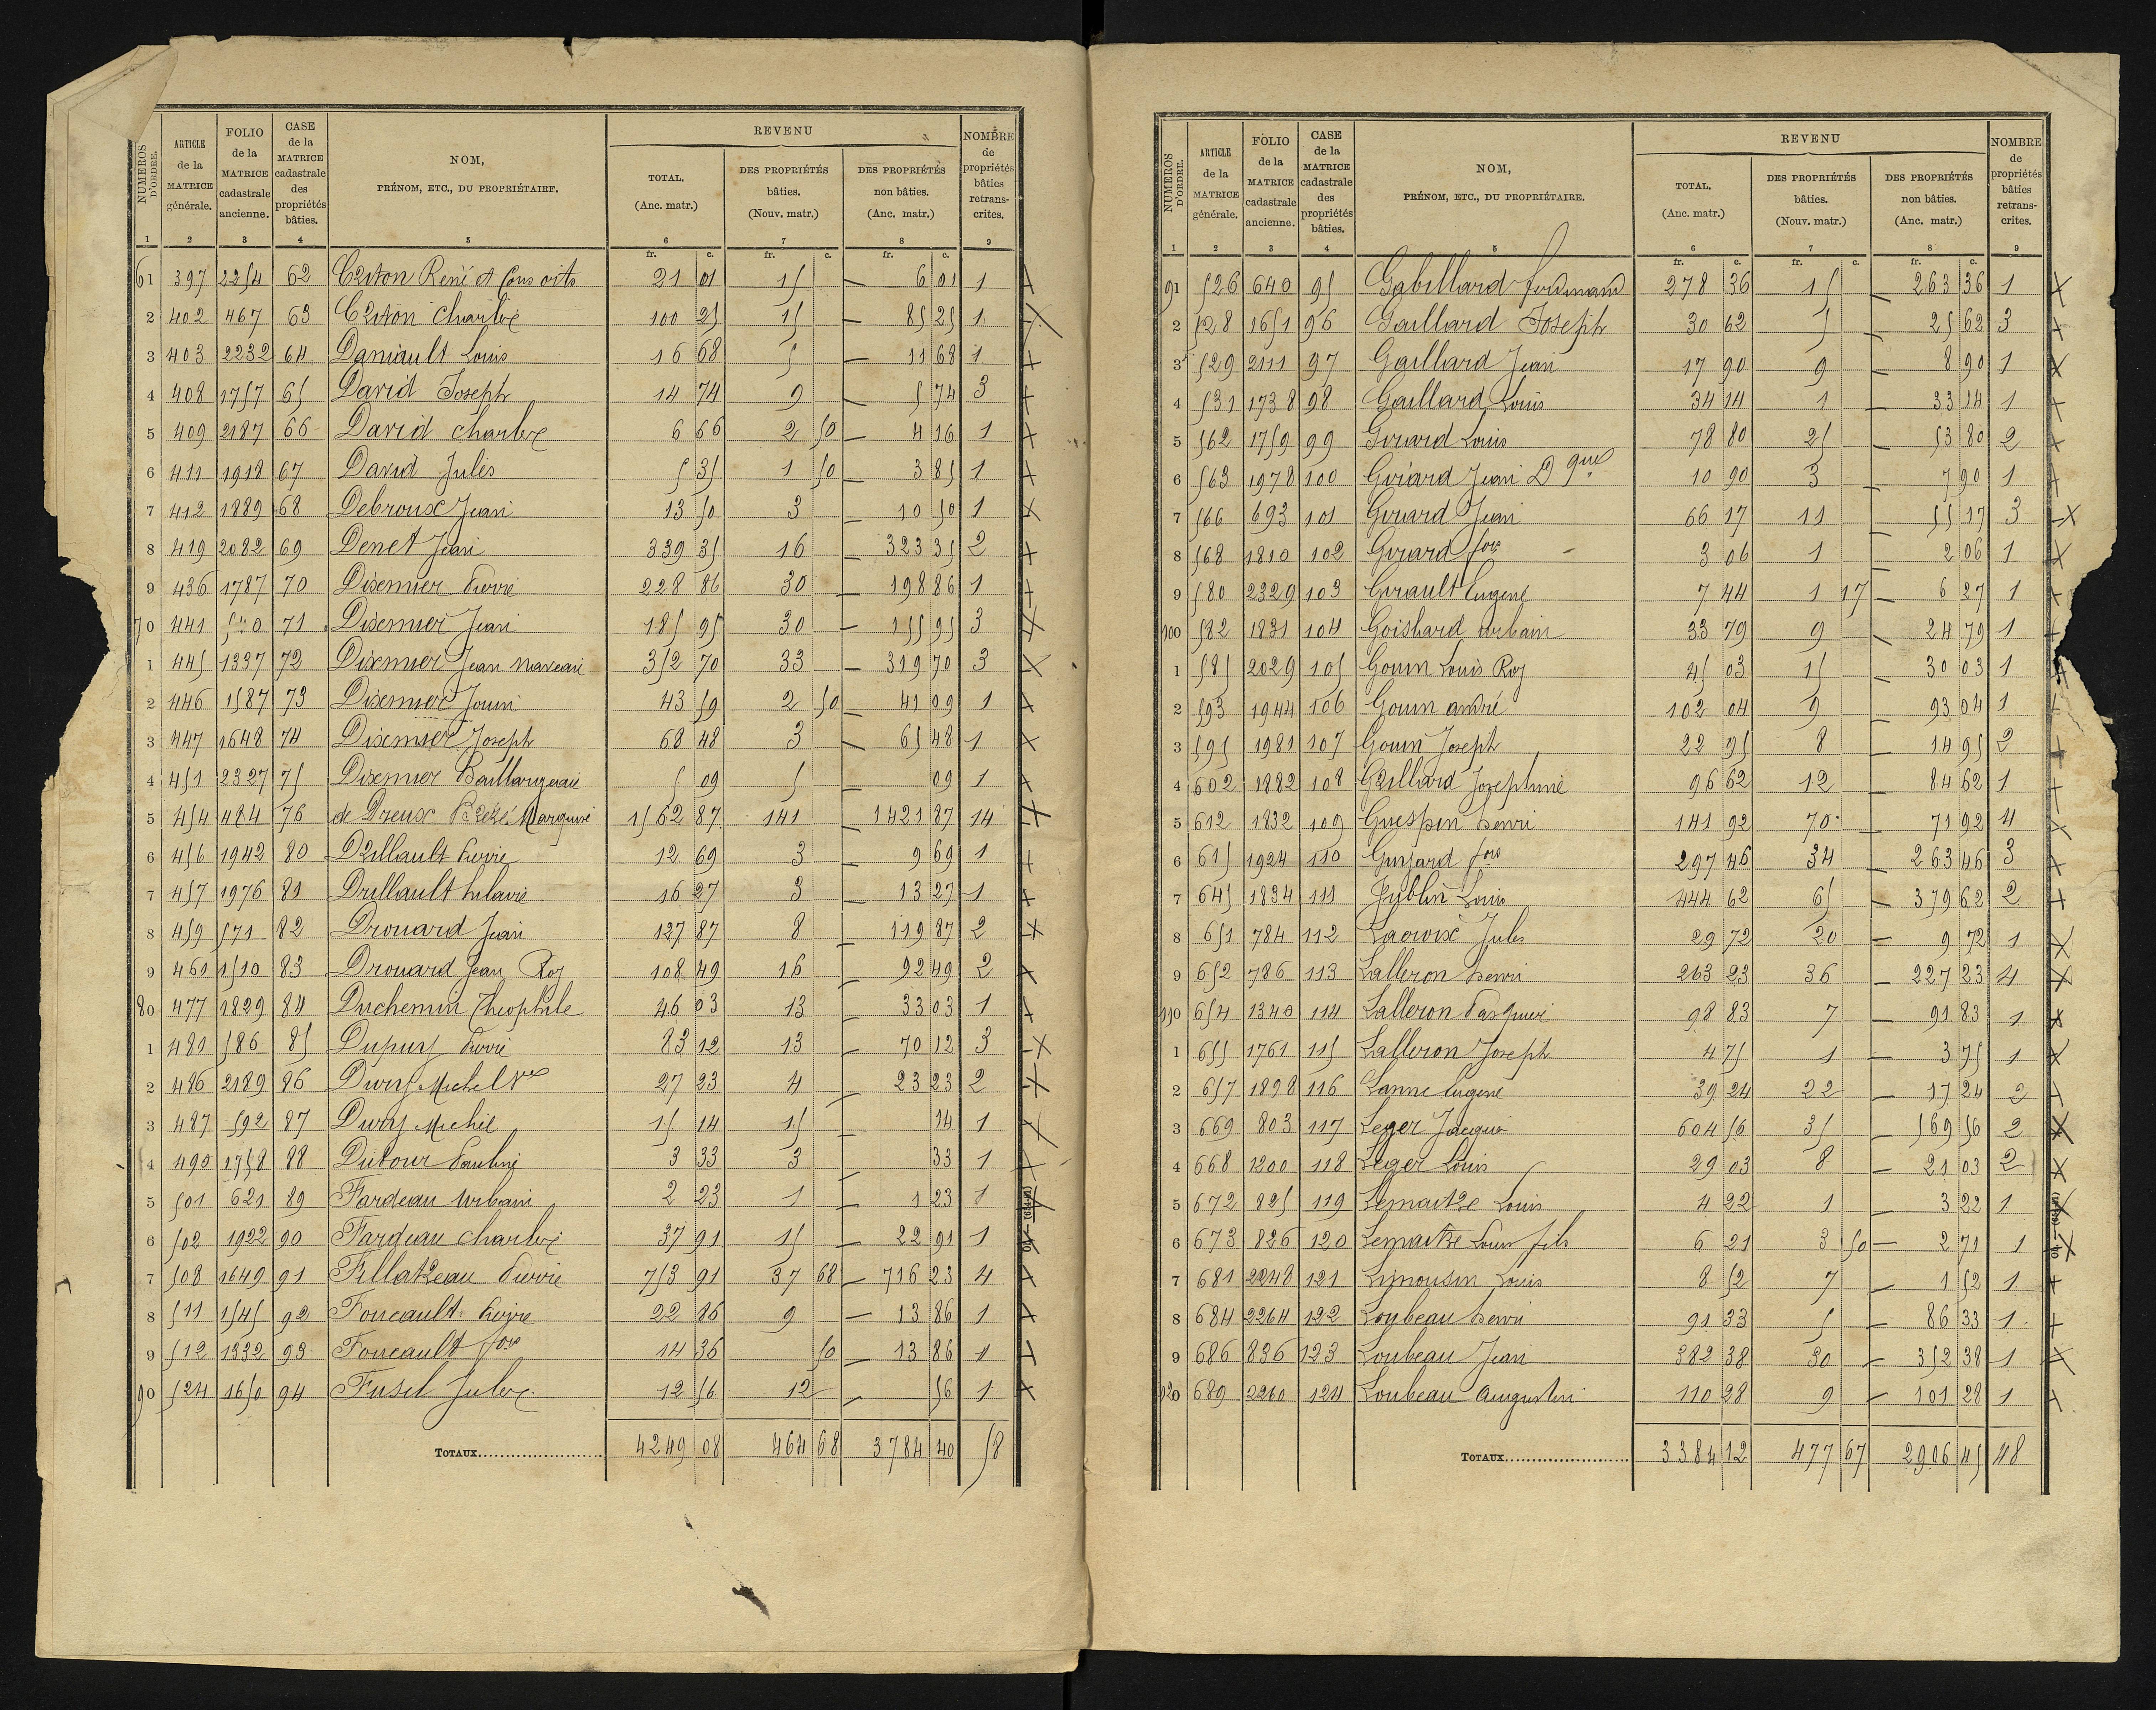 NUMÉROS D'ORDRE. | ARTICLE de la MATRICE générale. | FOLIO de la MATRICE cadastrale ancienne. | CASE de la MATRICE cadastrale des propriétés bâties. | NOM, PRÉNOM, ETC., DU PROPRIÉTAIRE. | REVENU | TOTAL. (Anc. matr.) | DES PROPRIÉTÉS bâties. (Nouv. matr.) | DES PROPRIÉTÉS non bâties. (Anc. matr.) | NOMBRE de propriétés bâties retranscrites.
1 2 3 4 5 6 7 8 9
fr. c. fr. c. fr. c.
61 397 2254 62 René et Consorts 21 01 15 — 6 01 1
2 402 467 63 Charles 100 25 15 — 85 25 1
3 403 2232 64 Daniault Louis 16 68 5 — 11 68 1
4 408 1757 65 David Joseph 14 74 9 — 5 74 3
5 409 2187 66 David Charles 6 66 2 50 — 4 16 1
6 411 1918 67 David Jules 5 35 1 50 — 3 85 1
7 412 1889 68 Debroux Jean 13 50 3 — 10 50 1
8 419 2082 69 Denet Jean 339 35 16 — 323 35 2
9 436 1787 70 Dixmier Pierre 228 86 30 — 198 86 1
70 441 71 Dixmier Jean 185 95 30 — 155 95 3
1 445 1337 72 Dixmier Jean Maveau 352 70 33 — 319 70 3
2 446 1587 73 Dixmier 43 59 2 50 — 41 09 1
3 447 1648 74 Dixmier Joseph 68 48 3 — 65 48 1
4 451 2327 75 Dixmier Baillargeau 5 09 5 — 09 1
5 454 484 76 de Dreux Brézé Marquise 1562 87 141 — 1421 87 14
6 456 1942 80 Drillault Pierre 12 69 3 — 9 69 1
7 457 1976 81 Drillault hilaire 16 27 3 — 13 27 1
8 459 571 82 Drouard Jean 127 87 8 — 119 87 2
9 461 1510 83 Drouard Jean Roy 108 49 16 — 92 49 2
80 477 1829 84 Duchemin Théophile 46 03 13 — 33 03 1
1 481 586 85 Dupuy Pierre 83 12 13 — 70 12 3
2 486 2189 86 Dury Michel Ve 27 23 4 — 23 23 2
3 487 592 87 Dury Michel 15 14 15 14 1
4 490 1758 88 Dutour Pauline 3 33 3 33 1
5 501 621 89 Fardeau Urbain 2 23 1 — 1 23 1
6 502 1922 90 Fardeau Charles 37 91 15 — 22 91 1
7 508 1649 91 Fillatreau Pierre 753 91 37 68 — 716 23 4
8 511 1545 92 Foucault Pierre 22 86 9 — 13 86 1
9 512 1332 93 Foucault fois 14 36 50 — 13 86 1
90 524 1650 94 Fusil Jules 12 56 12 56 1
TOTAUX 4249 08 464 68 3784 40 58
NUMÉROS D'ORDRE. | ARTICLE de la MATRICE générale. | FOLIO de la MATRICE cadastrale ancienne. | CASE de la MATRICE cadastrale des propriétés bâties. | NOM, PRÉNOM, ETC., DU PROPRIÉTAIRE. | REVENU | TOTAL. (Anc. matr.) | DES PROPRIÉTÉS bâties. (Nouv. matr.) | DES PROPRIÉTÉS non bâties. (Anc. matr.) | NOMBRE de propriétés bâties retranscrites.
1 2 3 4 5 6 7 8 9
fr. c. fr. c. fr. c.
91 526 640 95 Gabillard ferdinand 278 36 15 — 263 36 1
2 528 1651 96 Gaillard Joseph 30 62 5 — 25 62 3
3 529 2111 97 Gaillard Jean 17 90 9 — 8 90 1
4 531 1738 98 Gaillard Louis 34 14 1 — 33 14 1
5 562 1759 99 Girard Louis 78 80 25 — 53 80 2
6 563 1978 100 Girard Jean Dques 10 90 3 — 7 90 1
7 566 693 101 Girard Jean 66 17 11 — 55 17 3
8 568 1810 102 Girard fois 3 06 1 — 2 06 1
9 580 2329 103 Girault Eugène 7 44 1 17 — 6 27 1
100 582 1831 104 Goishard Urbain 33 79 9 — 24 79 1
1 585 2029 105 Gouin Louis Roy 45 03 15 — 30 03 1
2 593 1944 106 Gouin andré 102 04 9 — 93 04 1
3 595 1981 107 Gouin Joseph 22 95 8 — 14 95 2
4 602 1882 108 Grillard Joséphine 96 62 12 — 84 62 1
5 612 1832 109 Guespin henri 141 92 70 — 71 92 4
6 615 1924 110 Guyard fois 297 46 34 — 263 46 3
7 645 1834 111 Jublin Louis 444 62 65 — 379 62 2
8 651 784 112 Lacroix Jules 29 72 20 — 9 72 1
9 652 786 113 Lalleron henri 263 23 36 — 227 23 4
110 654 1340 114 Lalleron Pasquier 98 83 7 — 91 83 1
1 655 1761 115 Lalleron Joseph 4 75 1 — 3 75 1
2 657 1898 116 Lanne Eugène 39 24 22 — 17 24 2
3 669 803 117 Leger Jacques 604 56 35 — 569 56 2
4 668 1200 118 Leger Louis 29 03 8 — 21 03 2
5 672 825 119 Lemaitre Louis 4 22 1 — 3 22 1
6 673 826 120 Lemaitre Louis fils 6 21 3 50 — 2 71 1
7 681 2248 121 Limousin Louis 8 52 7 — 1 52 1
8 684 2264 122 Loubeau henri 91 33 5 — 86 33 1
9 686 836 123 Loubeau Jean 382 38 30 — 352 38 1
120 689 2260 124 Loubeau Augustin 110 28 9 — 101 28 1
TOTAUX 3384 12 477 67 2906 45 48